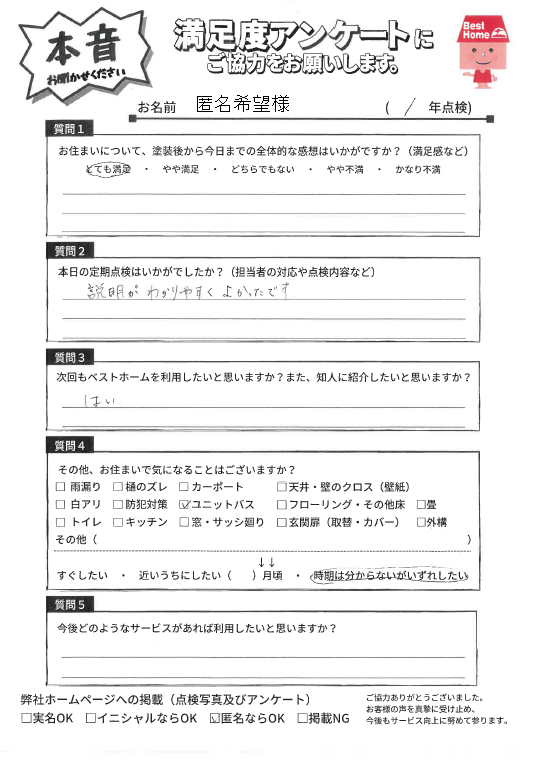 本音
お聞かせください
満足度アンケートに
ご協力をお願いします。
Best Home
お名前 匿名希望様 ( / 年点検)
質問1
お住まいについて、塗装後から今日までの全体的な感想はいかがですか？（満足感など）
とても満足 ・ やや満足 ・ どちらでもない ・ やや不満 ・ かなり不満
質問2
本日の定期点検はいかがでしたか？（担当者の対応や点検内容など）
説明が わかりやすく よかったです
質問3
次回もベストホームを利用したいと思いますか？また、知人に紹介したいと思いますか？
はい
質問4
その他、お住まいで気になることはございますか？
□ 雨漏り □ 樋のズレ □ カーポート □ 天井・壁のクロス（壁紙）
□ 白アリ □ 防犯対策 ☑ ユニットバス □ フローリング・その他床 □ 畳
□ トイレ □ キッチン □ 窓・サッシ廻り □ 玄関扉（取替・カバー） □ 外構
その他（ ）
↓↓
すぐしたい ・ 近いうちにしたい（ ）月頃 ・ 時期は分からないがいずれしたい
質問5
今後どのようなサービスがあれば利用したいと思いますか？
弊社ホームページへの掲載（点検写真及びアンケート）
□実名OK □イニシャルならOK ☑匿名ならOK □掲載NG
ご協力ありがとうございました。
お客様の声を真摯に受け止め、
今後もサービス向上に努めて参ります。